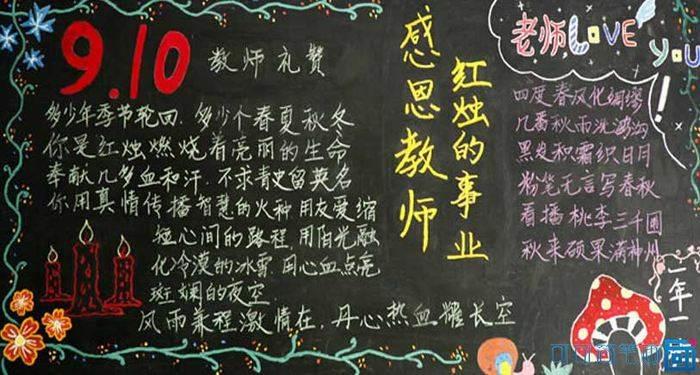 9.10
教师礼赞
多少年季节轮回.多少个春夏秋冬
你是红烛燃烧着亮丽的生命
奉献几多血和汗.不求青史留英名
你用真情传播智慧的火种.用友爱缩
短心间的路程.用阳光融
化冷漠的冰雪.用心血点亮
斑斓的夜空.
风雨兼程激情在.丹心热血耀长空
感恩教师
红烛的事业
老师LOVE
you!
四度春风化绸缪
几番秋雨洗鸿沟
黑发和霜织日月
粉笔无言写春秋
看播桃李三千圃
秋来硕果满神州
一年一